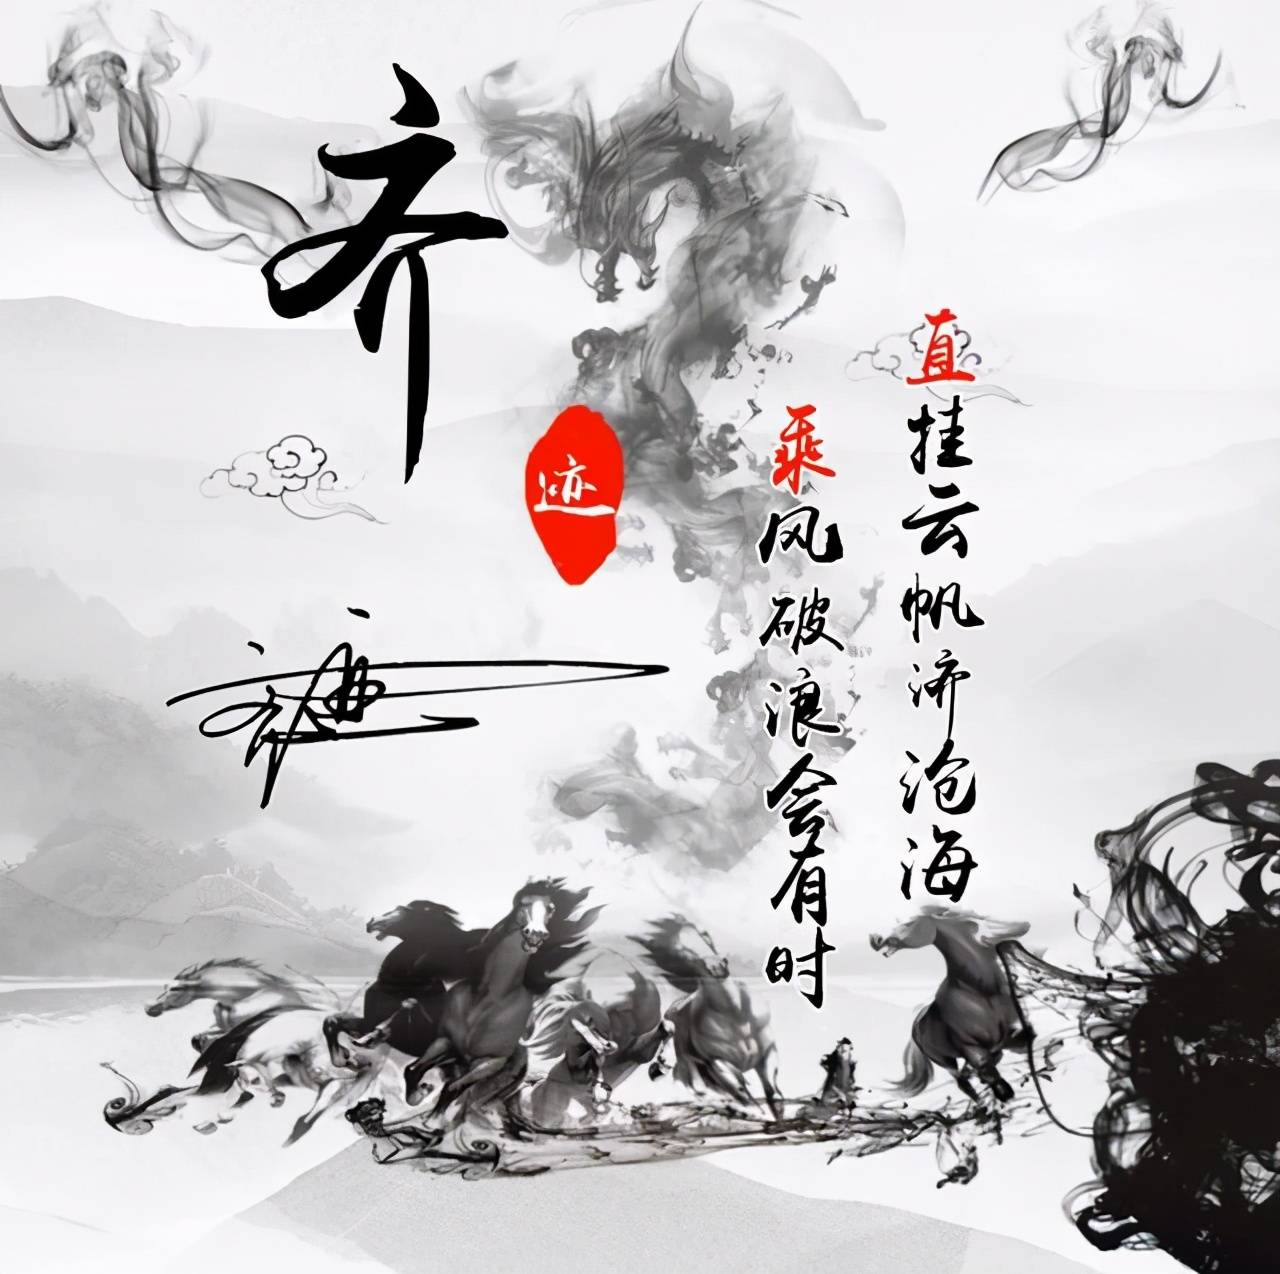 齐
迹
乘风破浪会有时
直挂云帆济沧海